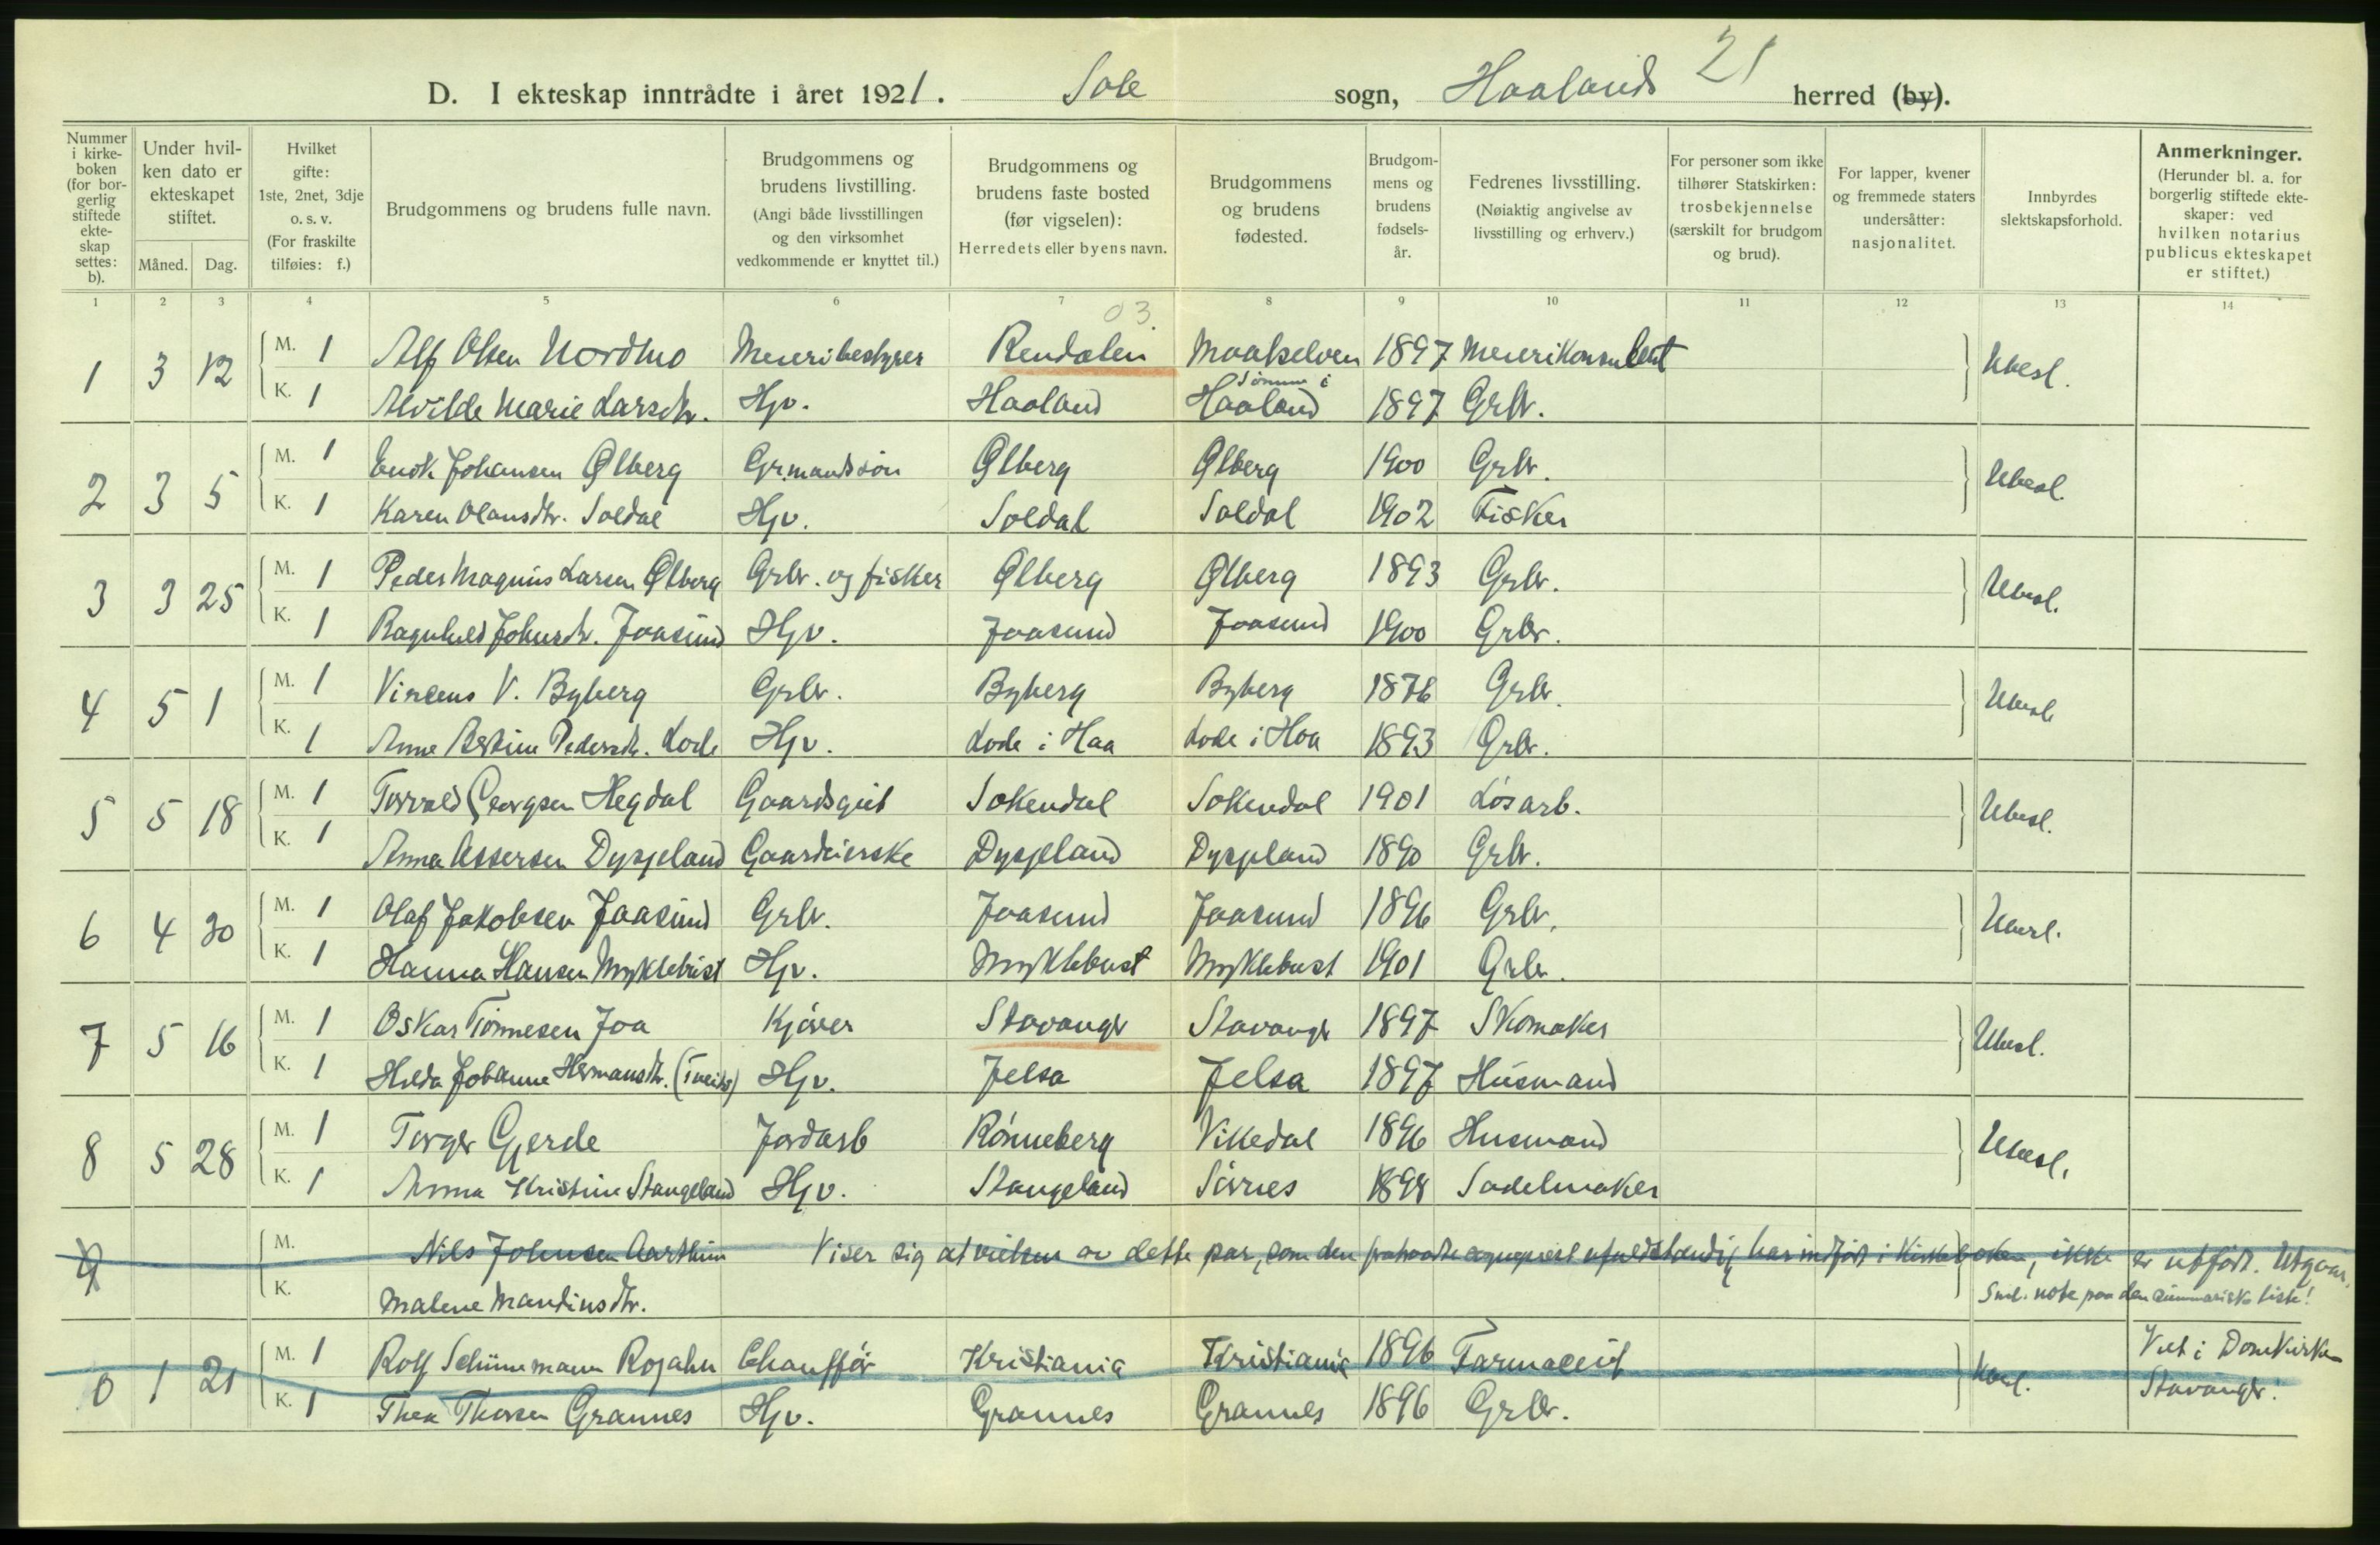 21
D. I ekteskap inntrådte i året 1921. Sole sogn, Haalands herred (by).
Nummer i kirke-boken (for bor-gerlig stiftede ekte-skap settes: b).
Under hvil-ken dato er ekteskapet stiftet.
Måned. Dag.
Hvilket gifte: 1ste, 2net, 3dje o. s. v. (For fraskilte tilføies: f.)
Brudgommens og brudens fulle navn.
Brudgommens og brudens livstilling. (Angi både livsstillingen og den virksomhet vedkommende er knyttet til.)
Brudgommens og brudens faste bosted (før vigselen): Herredets eller byens navn.
Brudgommens og brudens fødested.
Brudgom-mens og brudens fødsels-år.
Fedrenes livsstilling. (Nøiaktig angivelse av livsstilling og erhverv.)
For personer som ikke tilhører Statskirken: trosbekjennelse (særskilt for brudgom og brud).
For lapper, kvener og fremmede staters undersåtter: nasjonalitet.
Innbyrdes slektskapsforhold.
Anmerkninger. (Herunder bl. a. for borgerlig stiftede ekte-skaper: ved hvilken notarius publicus ekteskapet er stiftet.)
1 2 3 4 5 6 7 8 9 10 11 12 13 14
03.
1 3 12 M. 1 Alf Olsen Nordmo Meieribestyrer Rendalen Maalselven 1897 Meierikonsulent Ubesl.
K. 1 Alvilde Marie Larsdtr. Hjv. Haaland Sömme i Haaland 1897 Grbr.
2 3 5 M. 1 Enok Johansen Ølberg Grmandssön Ølberg Ølberg 1900 Grbr. Ubesl.
K. 1 Karen Olausdtr. Soldal Hjv. Soldal Soldal 1902 Fisker
3 3 25 M. 1 Peder Magnus Larsen Ølberg Grbr. og fisker Ølberg Ølberg 1893 Grbr. Ubesl.
K. 1 Ragnhild Johnsdtr. Jaasund Hjv. Jaasund Jaasund 1900 Grbr.
4 5 1 M. 1 Vincens V. Byberg Grbr. Byberg Byberg 1876 Grbr. Ubesl.
K. 1 Anne Bertine Pedersdtr. Lode Hjv. Lode i Haa Lode i Haa 1893 Grbr.
5 5 18 M. 1 Torvald Georgsen Hegdal Gaardsgut Sokendal Sokendal 1901 Lösarb. Ubesl.
K. 1 Anna Assersen Dysjeland Gaardeierske Dysjeland Dysjeland 1890 Grbr.
6 4 30 M. 1 Olaf Jakobsen Jaasund Grbr. Jaasund Jaasund 1896 Grbr. Ubesl.
K. 1 Hanna Hansen Myklebust Hjv. Myklebust Myklebust 1901 Grbr.
7 5 16 M. 1 Oskar Tönnesen Joa Kjörer Stavanger Stavanger 1897 Skomaker Ubesl.
K. 1 Hilda Johanne Hermansdtr. Hjv. Jelsa Jelsa 1897 Husmand
8 5 28 M. 1 Torger Gjerde Jordarb Rönneberg Vikedal 1896 Husmand Ubesl.
K. 1 Anna Kristine Stangeland Hjv. Stangeland Sörnes 1898 Sadelmaker
9 M. Nils Johnsen Viser sig at vielsen av dette par, som den ufuldstændig har indfört i Kirkeboken, ikke er utfört. Utgaar.
K. Malene Mandinsdtr. Sml. note paa den summariske liste!
0 1 21 M. 1 Rolf Schünemann Rojahn Chaufför Kristiania Kristiania 1896 Farmaceut Ubesl. Viet i Domkirken
K. 1 Thea Thorsen Grannes Hjv. Grannes Grannes 1896 Grbr. Stavanger!